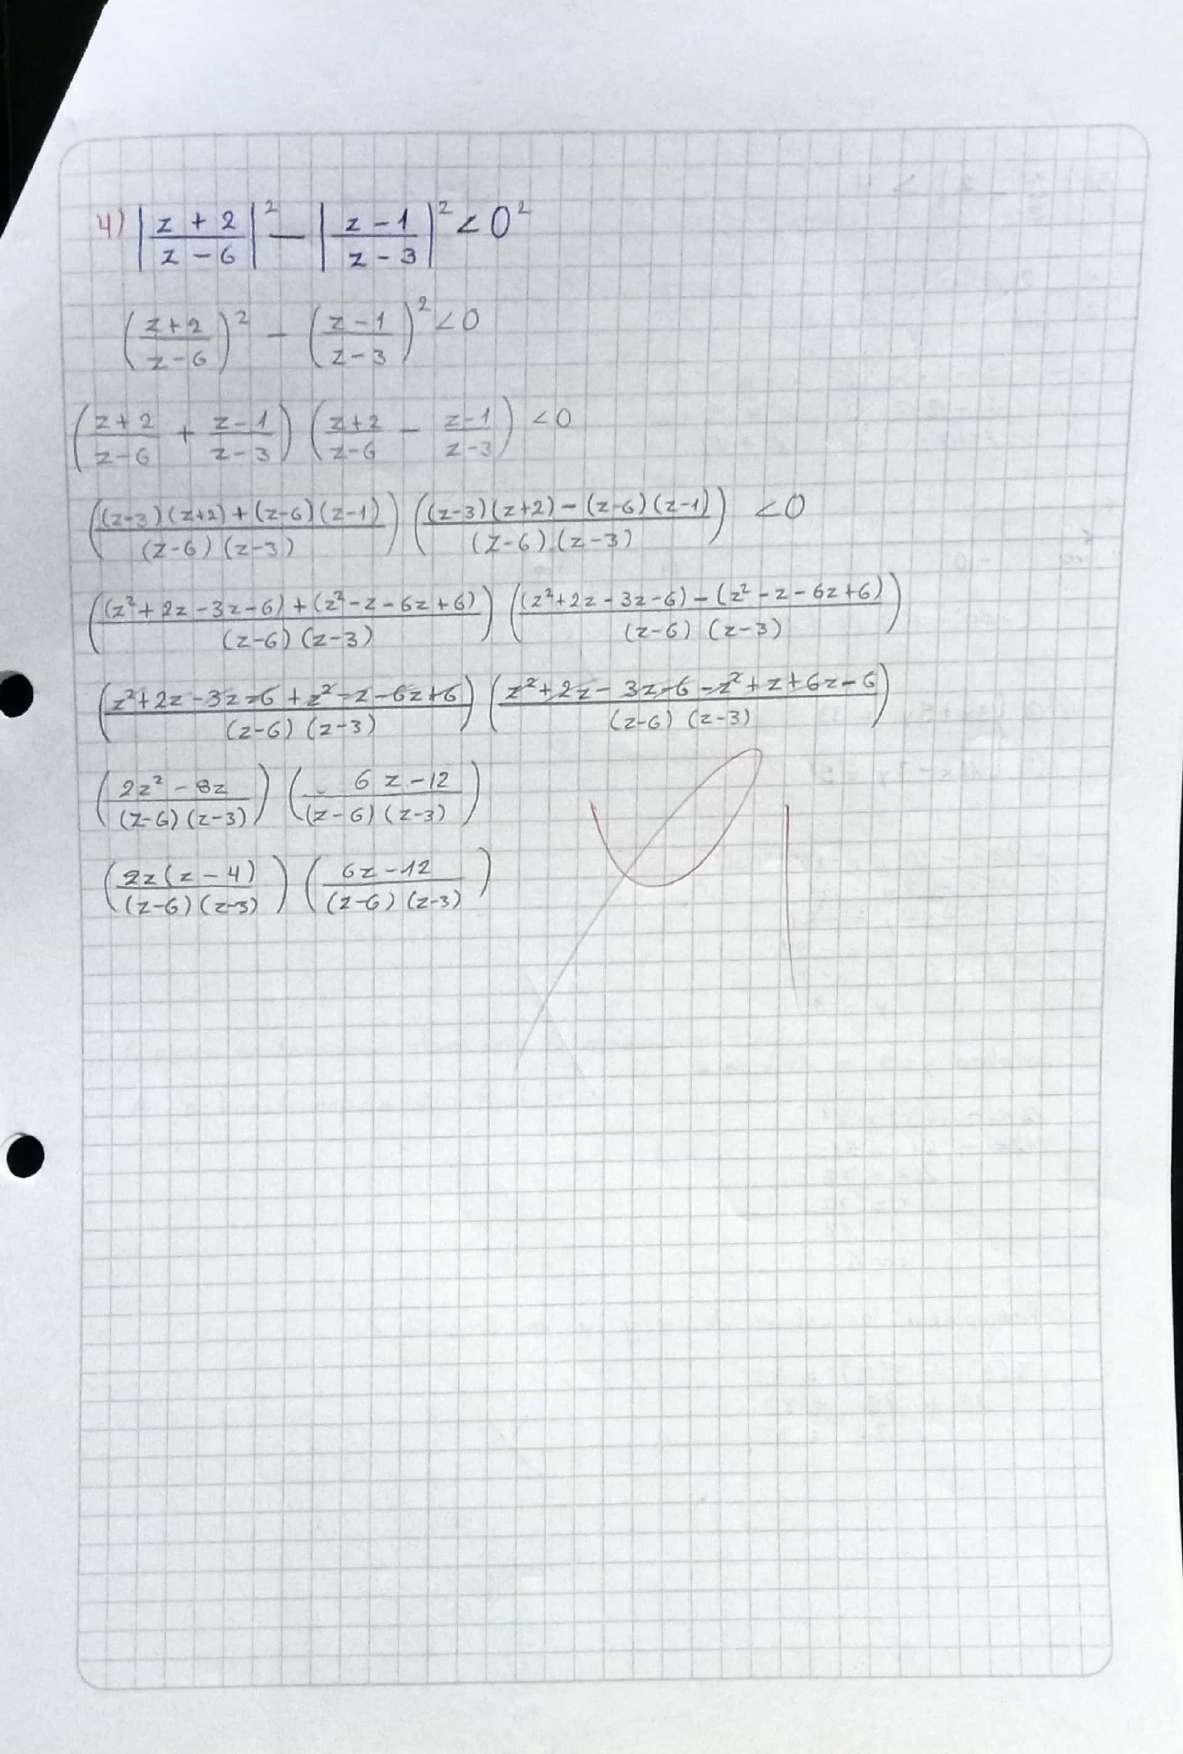 4) |(z + 2)/(z - 6)|² - |(z - 1)/(z - 3)|² < 0²
((z+2)/(z-6))² - ((z-1)/(z-3))² < 0
((z+2)/(z-6) + (z-1)/(z-3)) ((z+2)/(z-6) - (z-1)/(z-3)) < 0
(((z-3)(z+2)+(z-6)(z-1))/((z-6)(z-3))) (((z-3)(z+2)-(z-6)(z-1))/((z-6)(z-3))) < 0
(((z²+2z-3z-6)+(z²-z-6z+6))/((z-6)(z-3))) (((z²+2z-3z-6)-(z²-z-6z+6))/((z-6)(z-3)))
((z²+2z-3z-6+z²-z-6z+6)/((z-6)(z-3))) ((z²+2z-3z-6-z²+z+6z-6)/((z-6)(z-3)))
((2z²-8z)/((z-6)(z-3))) ((6z-12)/((z-6)(z-3)))
((2z(z-4))/((z-6)(z-3))) ((6z-12)/((z-6)(z-3)))